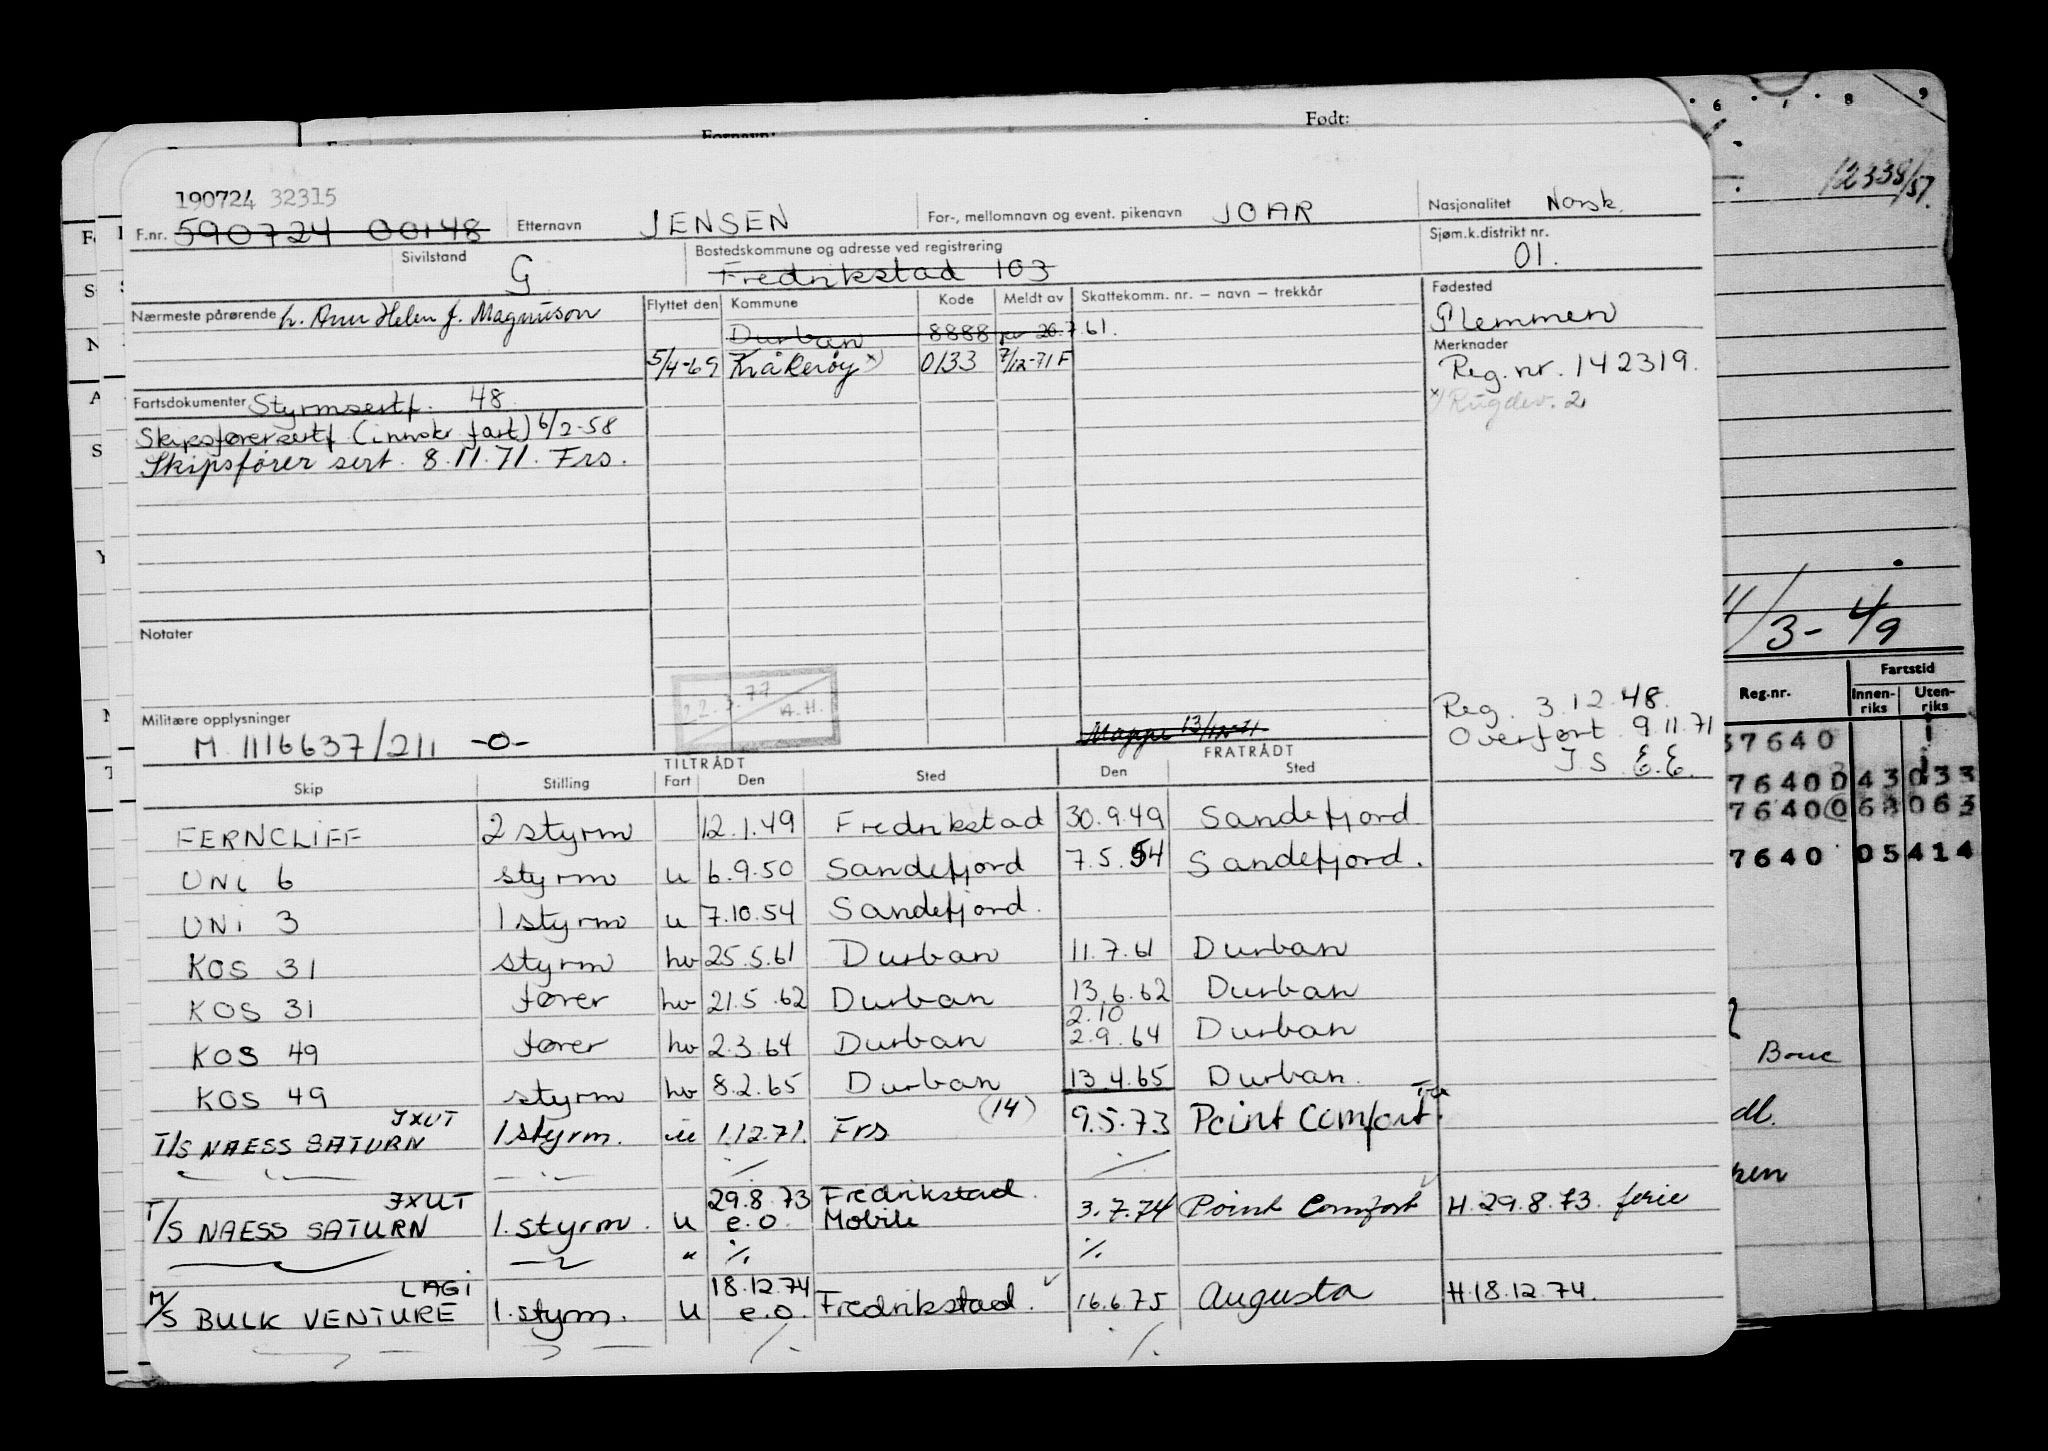 Fornavn:
Født:
6 8 9
12338/57.
190724 32315
F.nr. 590724 00148 Etternavn JENSEN For-, mellomnavn og event. pikenavn JOAR Nasjonalitet Norsk.
Sivilstand G Bostedskommune og adresse ved registrering Sjøm.k.distrikt nr. 01.
Fredrikstad 103
Nærmeste pårørende h. Ann Helen f. Magnuson Flyttet den Kommune Kode Meldt av Skattekomm. nr. – navn – trekkår Fødested
Durban 8888 20.7.61. Glemmen
5/4-69 Kråkerøy x) 0133 7/12-71 F Merknader
Reg.nr. 142319.
Fartsdokumenter Styrmsertf. 48. x) Rugdev. 2
Skipsførersertf (innskr fart) 6/2-58
Skipsfører sert. 8.11.71. Frs.
Notater
22.3.77 A.H.
Militære opplysninger
M 1116637/211 -0-
Mappe
Reg. 3.12.48.
Overført 9.11.71
J.S. E.E.
11/3-49
TILTRÅDT FRATRÅDT
Skip Stilling Fart Den Sted Den Sted
FERNCLIFF 2 styrm 12.1.49 Fredrikstad 30.9.49 Sandefjord
UNI 6 styrm u 6.9.50 Sandefjord 7.5.54 Sandefjord.
UNI 3 1 styrm u 7.10.54 Sandefjord.
KOS 31 styrm hv 25.5.61 Durban 11.7.61 Durban
KOS 31 fører hv 21.5.62 Durban 13.6.62 Durban
2.10
KOS 49 fører hv 2.3.64 Durban 2.9.64 Durban
KOS 49 styrm hv 8.2.65 Durban 13.4.65 Durban.
JXUT (14)
T/S NAESS SATURN 1 styrm. u 1.12.71. Frs 9.5.73 Point Comfort
JXUT 29.8.73 Fredrikstad.
T/S NAESS SATURN 1. styrm. u e.o. Mobile 3.7.74 Point Comfort H. 29.8.73. ferie
" ·/. ·/.
LAGI 18.12.74
M/S BULK VENTURE 1. styrm. u e.o. Fredrikstad. 16.6.75 Augusta H.18.12.74.
Reg.nr. Fartstid
Innenriks Utenriks
37640
76400 43 033
7640 05 414